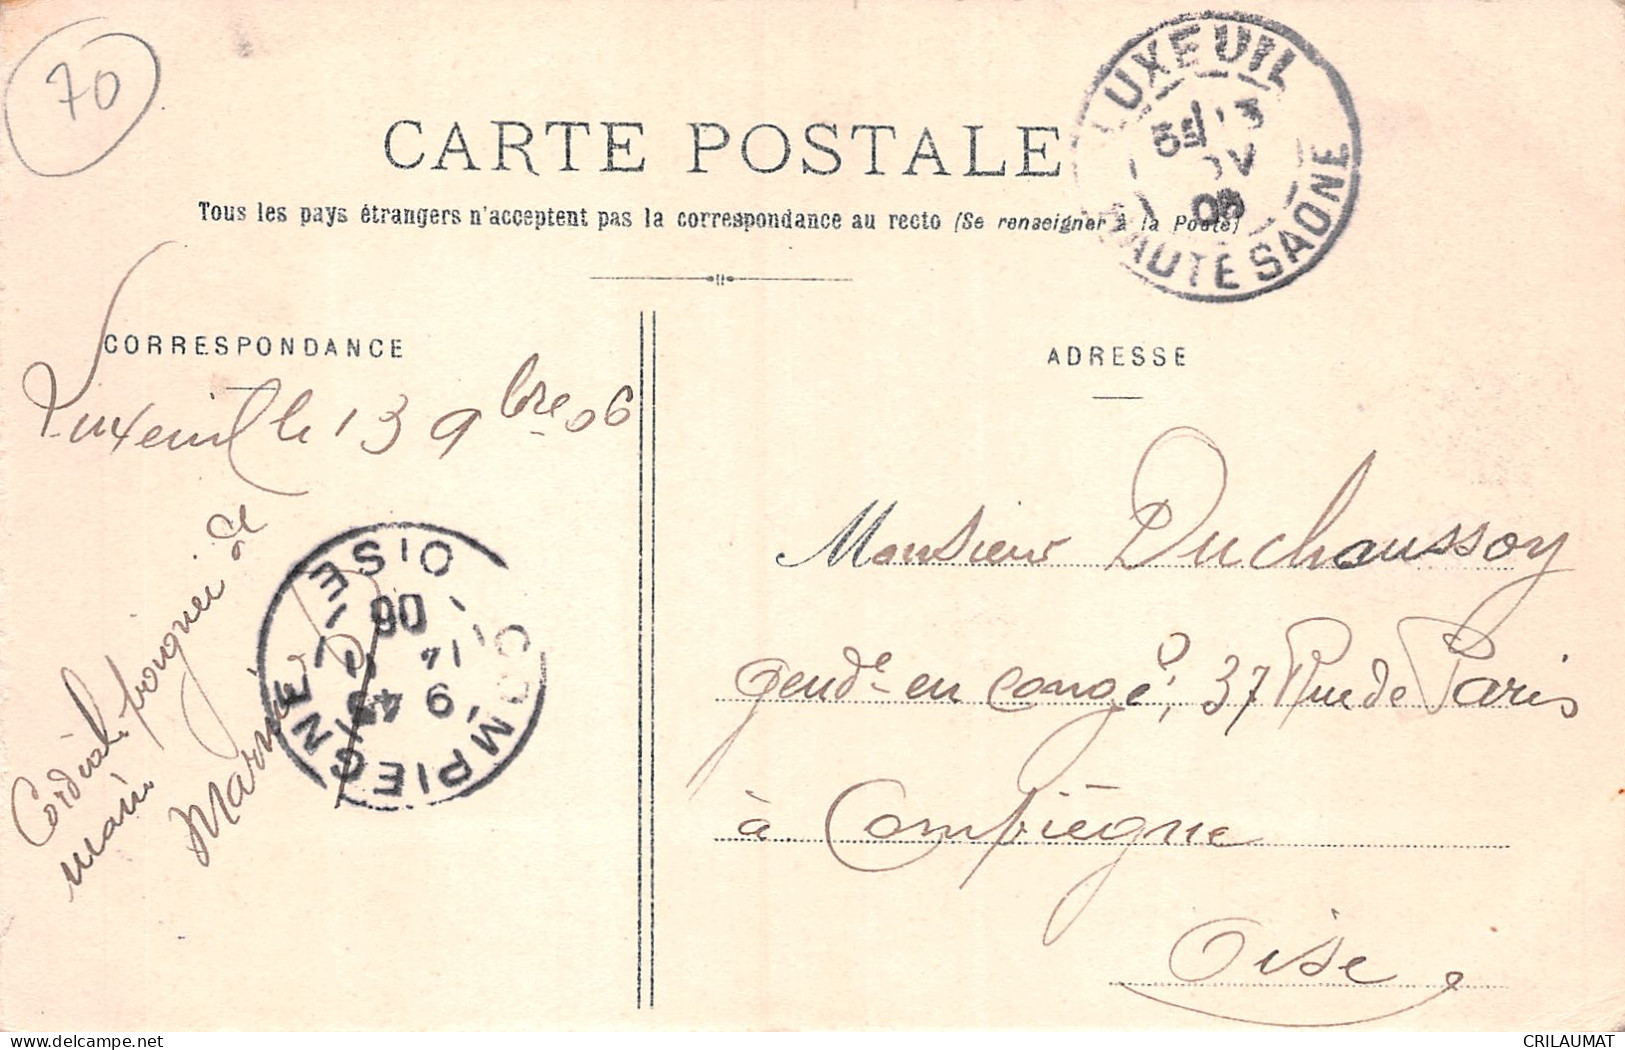 70
CARTE POSTALE
Tous les pays étrangers n'acceptent pas la correspondance au recto (Se renseigner à la Poste)
LUXEUIL
13
06
HAUTE SAONE
CORRESPONDANCE
ADRESSE
Luxeuil le 13 9bre 06
Cordiale poignée de
main
COMPIEGNE
OISE
9 45
14
06
Monsieur Duchaussoy
gende en congé, 37 Rue de Paris
à Compiègne
Oise
delcampe.net
CRILAUMAT